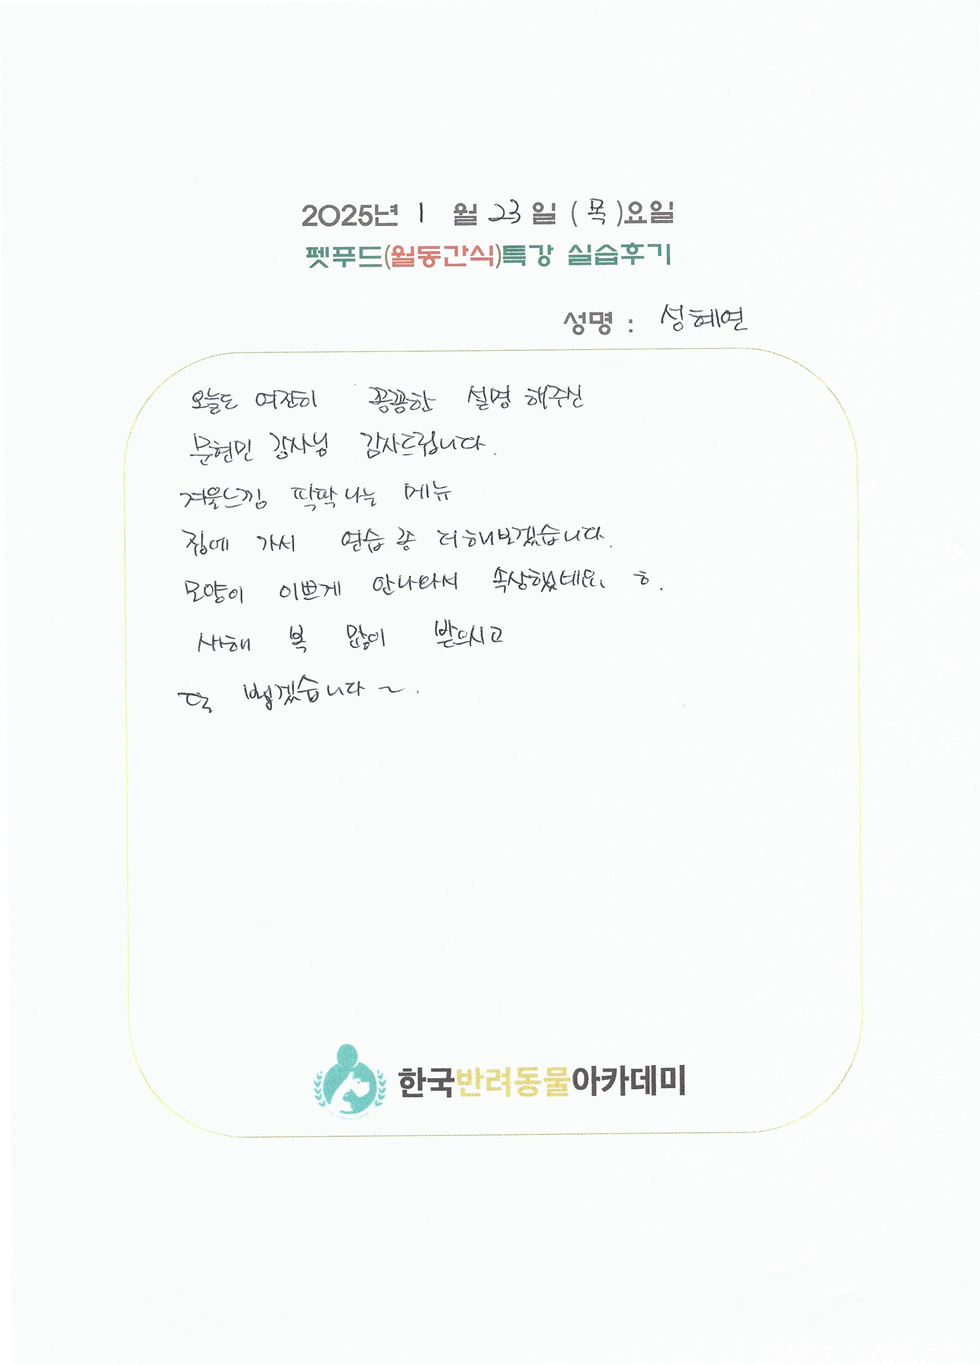 2025년 1 월 23 일 (목)요일
펫푸드(월동간식)특강 실습후기
성명 : 성혜연
오늘도 여전히 꼼꼼한 설명 해주신
문현민 강사님 감사드립니다.
겨울느낌 딱딱나는 메뉴
집에 가서 연습 좀 더해보겠습니다.
모양이 이쁘게 안나와서 속상했네요. ㅎ.
새해 복 많이 받으시고
또 뵙겠습니다~.
한국반려동물아카데미